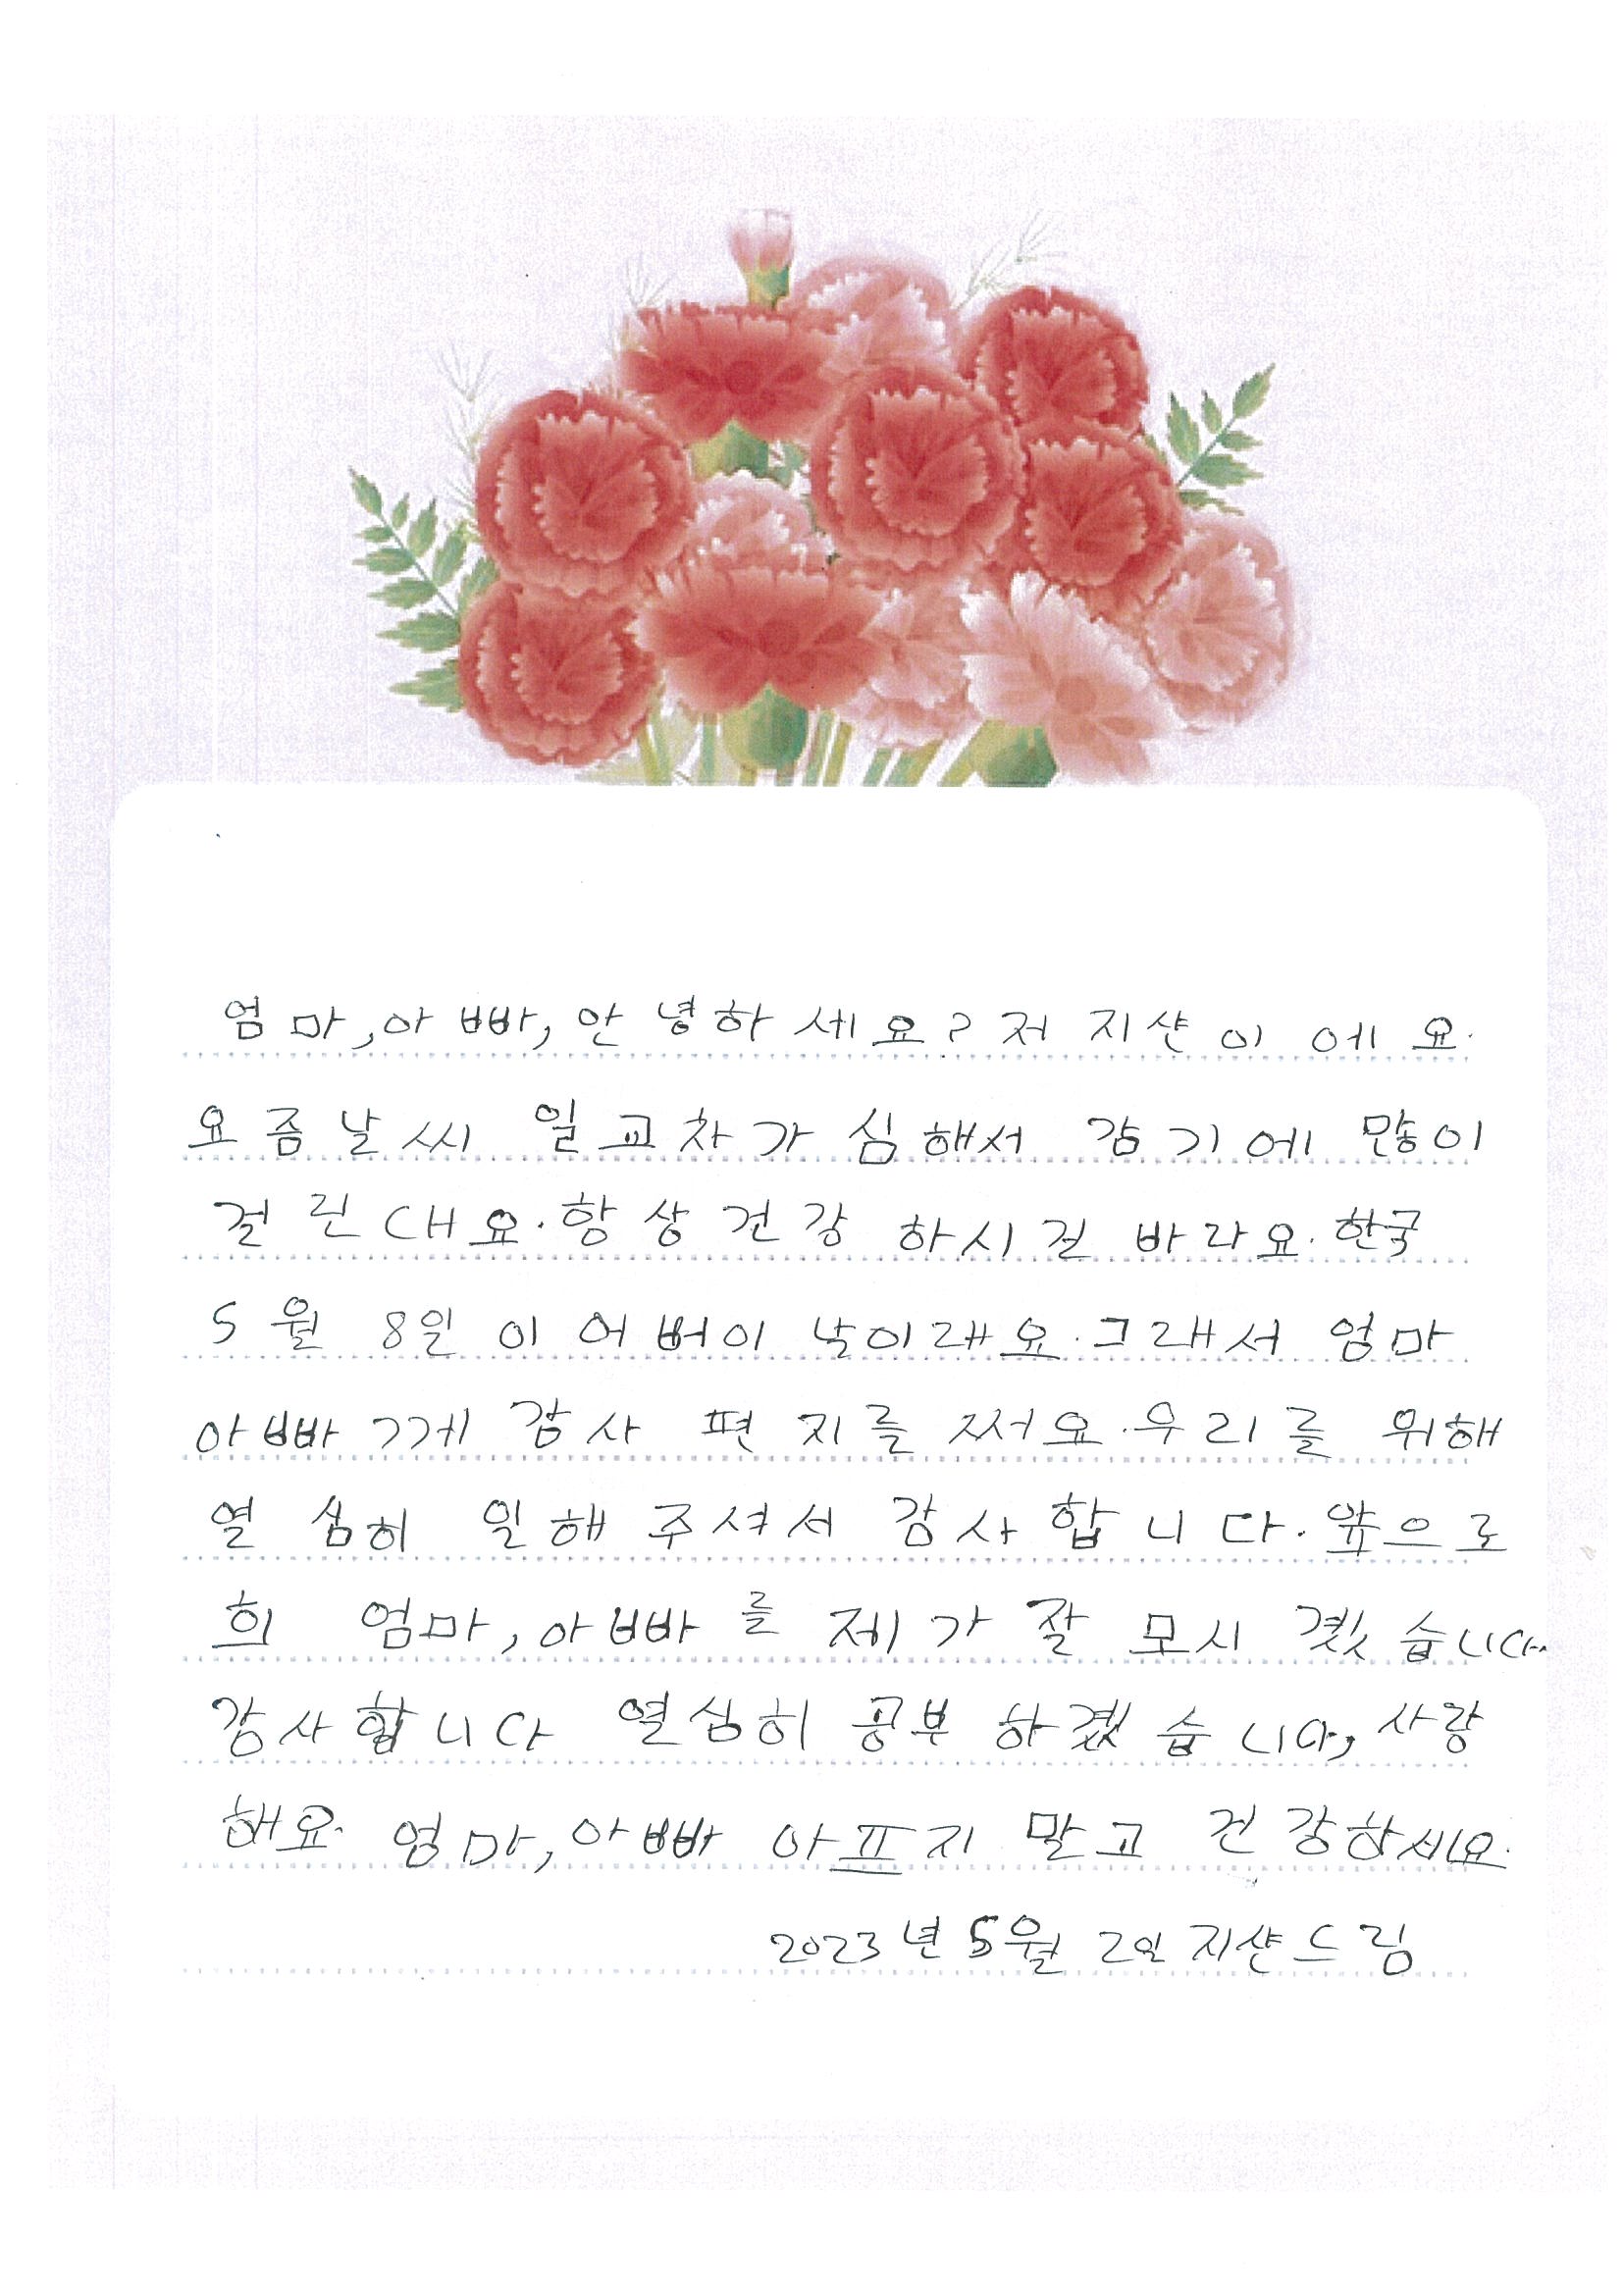 엄마, 아빠, 안녕하세요? 저 지샨이에요.
요즘 날씨 일교차가 심해서 감기에 많이
걸린대요. 항상 건강 하시길 바라요. 한국
5월 8일이 어버이 날이래요. 그래서 엄마
아빠께 감사 편지를 써요. 우리를 위해
열심히 일해 주셔서 감사합니다. 앞으로
희 엄마, 아빠를 제가 잘 모시겠습니다.
감사합니다 열심히 공부 하겠습니다, 사랑
해요. 엄마, 아빠 아프지 말고 건강하세요.
2023년 5월 2일 지샨드림